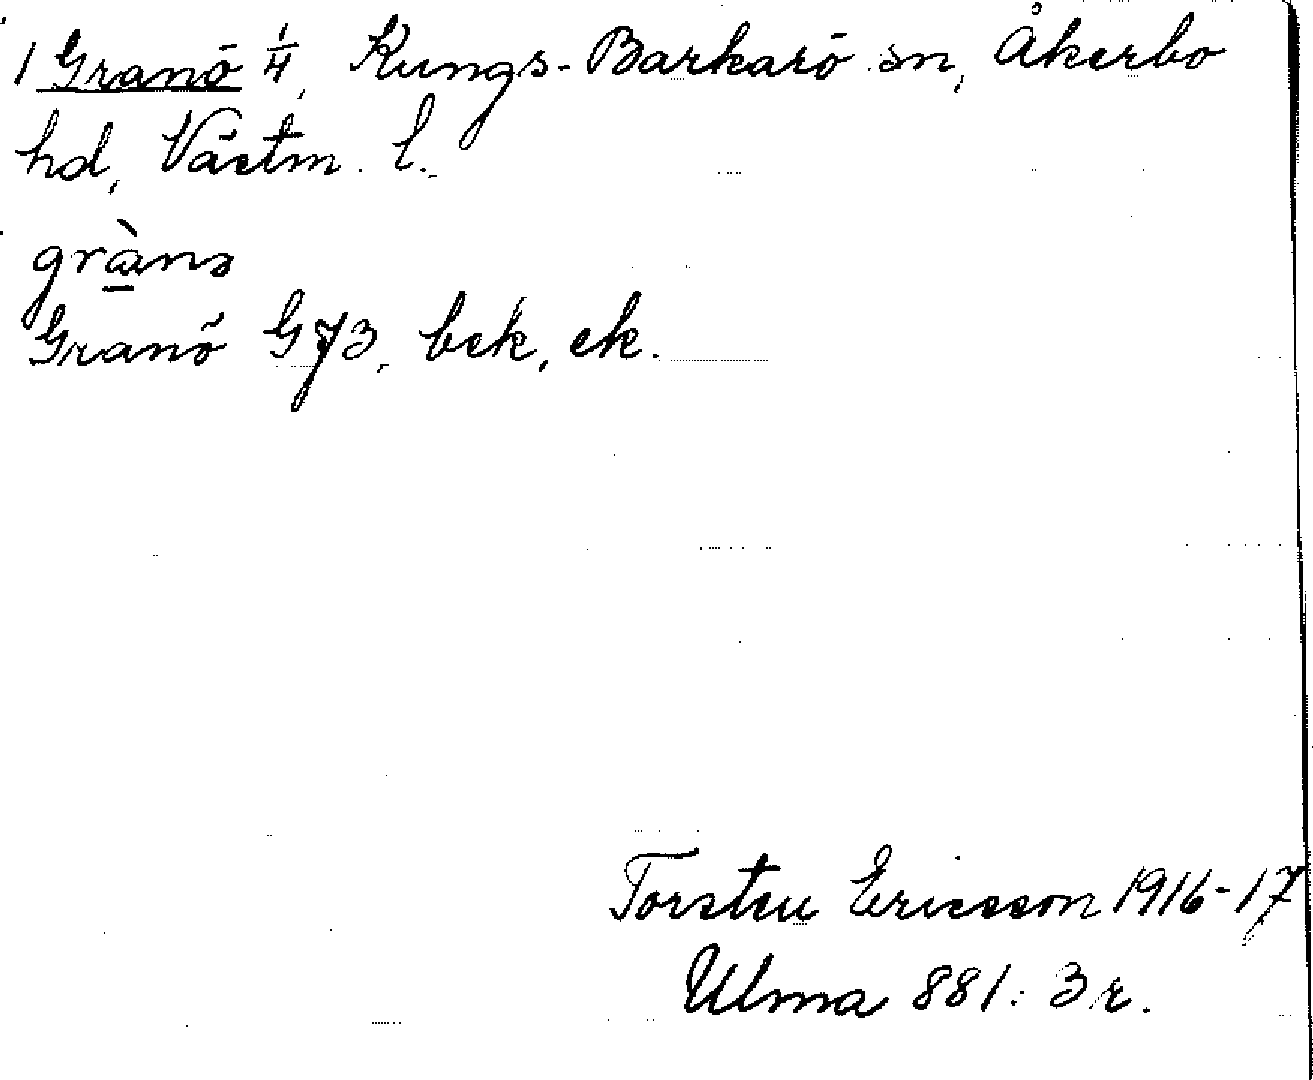 1 Granö 1/4, Kungs-Barkarö sn, Åkerbo
hd, Västm. l.
grànə
Granö G73, bek, ek.
Torsten Ericsson 1916-17
Ulma 881: 3 r.